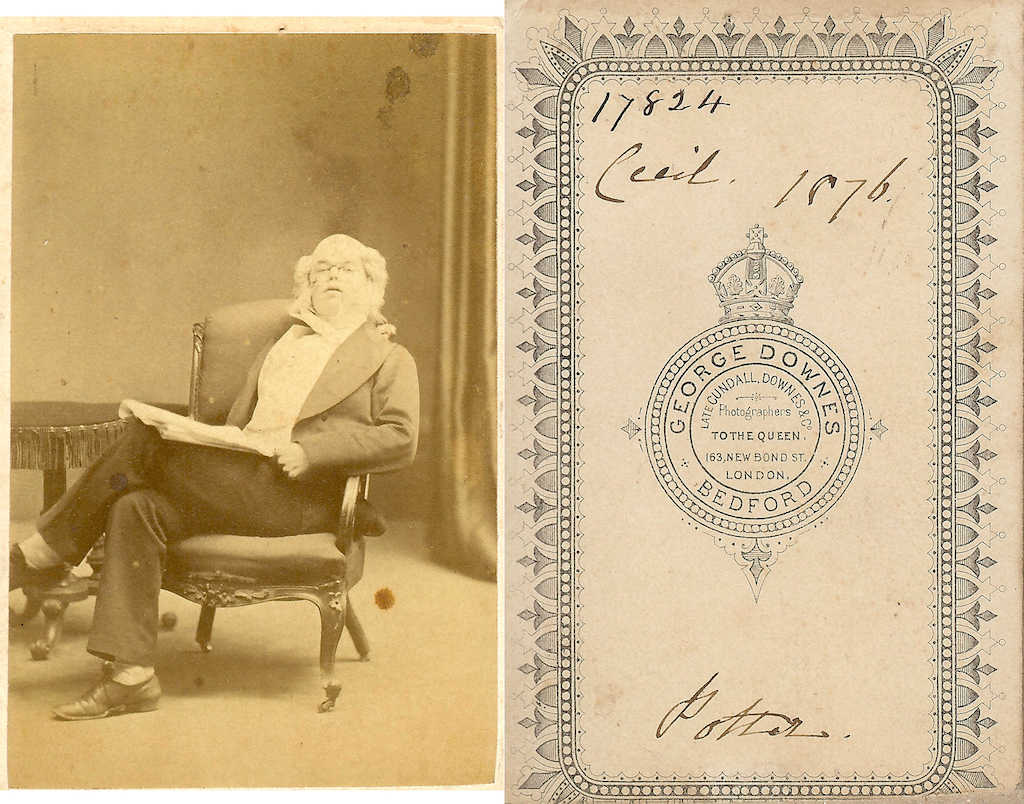 17824
Cecil. 1876.
GEORGE DOWNES
LATE CUNDALL, DOWNES & Co
Photographers
TO THE QUEEN.
163, NEW BOND ST.
LONDON.
BEDFORD
Potter.